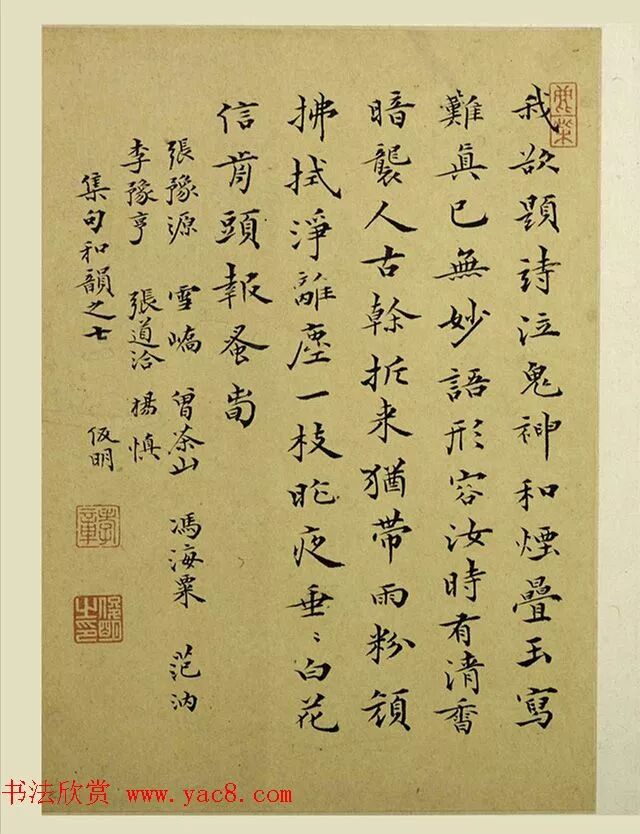 我欲題詩泣鬼神和煙疊玉寫
難眞已無妙語形容汝時有清香
暗襲人古幹折来猶帶雨粉顏
拂拭淨離塵一枝昨夜垂〻白花
信肯頭報蚤旾
張豫源 雪嶠 曾茶山 馮海粟 范汭
李豫亨 張道洽 楊慎
集句和韻之七 俊明
孝章
俊明之印
书法欣赏 www.yac8.com